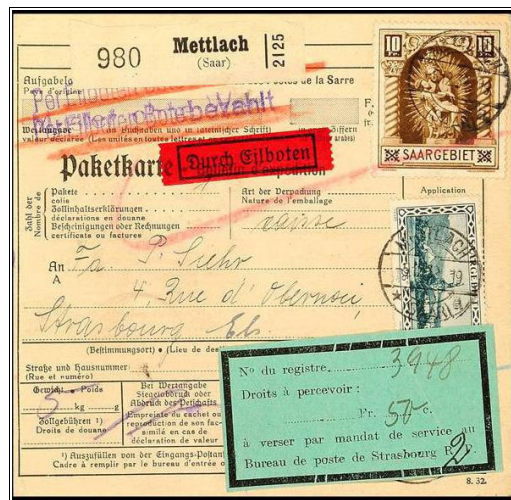 980 Mettlach
(Saar)
2125
10 Fr. 10 Fr.
SAARGEBIET
Aufgabe
Postes de la Sarre
Per Eilboten
Per Eilboten Bote bezahlt
Wertangabe
(in Buchstaben und in lateinischer Schrift)
valeur déclarée (Les unités en toutes lettres et en
Ziffern
F.
fr.
Paketkarte
Durch Eilboten
Zahl der
Nombre de
Pakete
colis
Zollinhaltserklärungen
déclarations en douane
Bescheinigungen oder Rechnungen
certificats ou factures
Art der Verpackung
Nature de l'emballage
caisse
Application
An
A
Fa. P. Suhr
4, Rue d'Obernai
Strasbourg Els.
SAARGEBIET
(Bestimmungsort) • (Lieu de
Straße und Hausnummer
(Rue et numéro)
Gewicht • Poids
5
kg g
Zollgebühren ¹)
Droits de douane
Bei Wertangabe
Siegelabdruck oder
Abdruck des Petschafts
Empreinte du cachet ou
reproduction de son fac-
similé en cas de
déclaration de valeur
¹) Auszufüllen von der Eingangs-Postan
Cadre à remplir par le bureau d'entrée
Nº du registre. 3948
Droits à percevoir :
Fr. 50 c.
à verser par mandat de service au
Bureau de poste de Strasbourg R. 2.
8. 32.